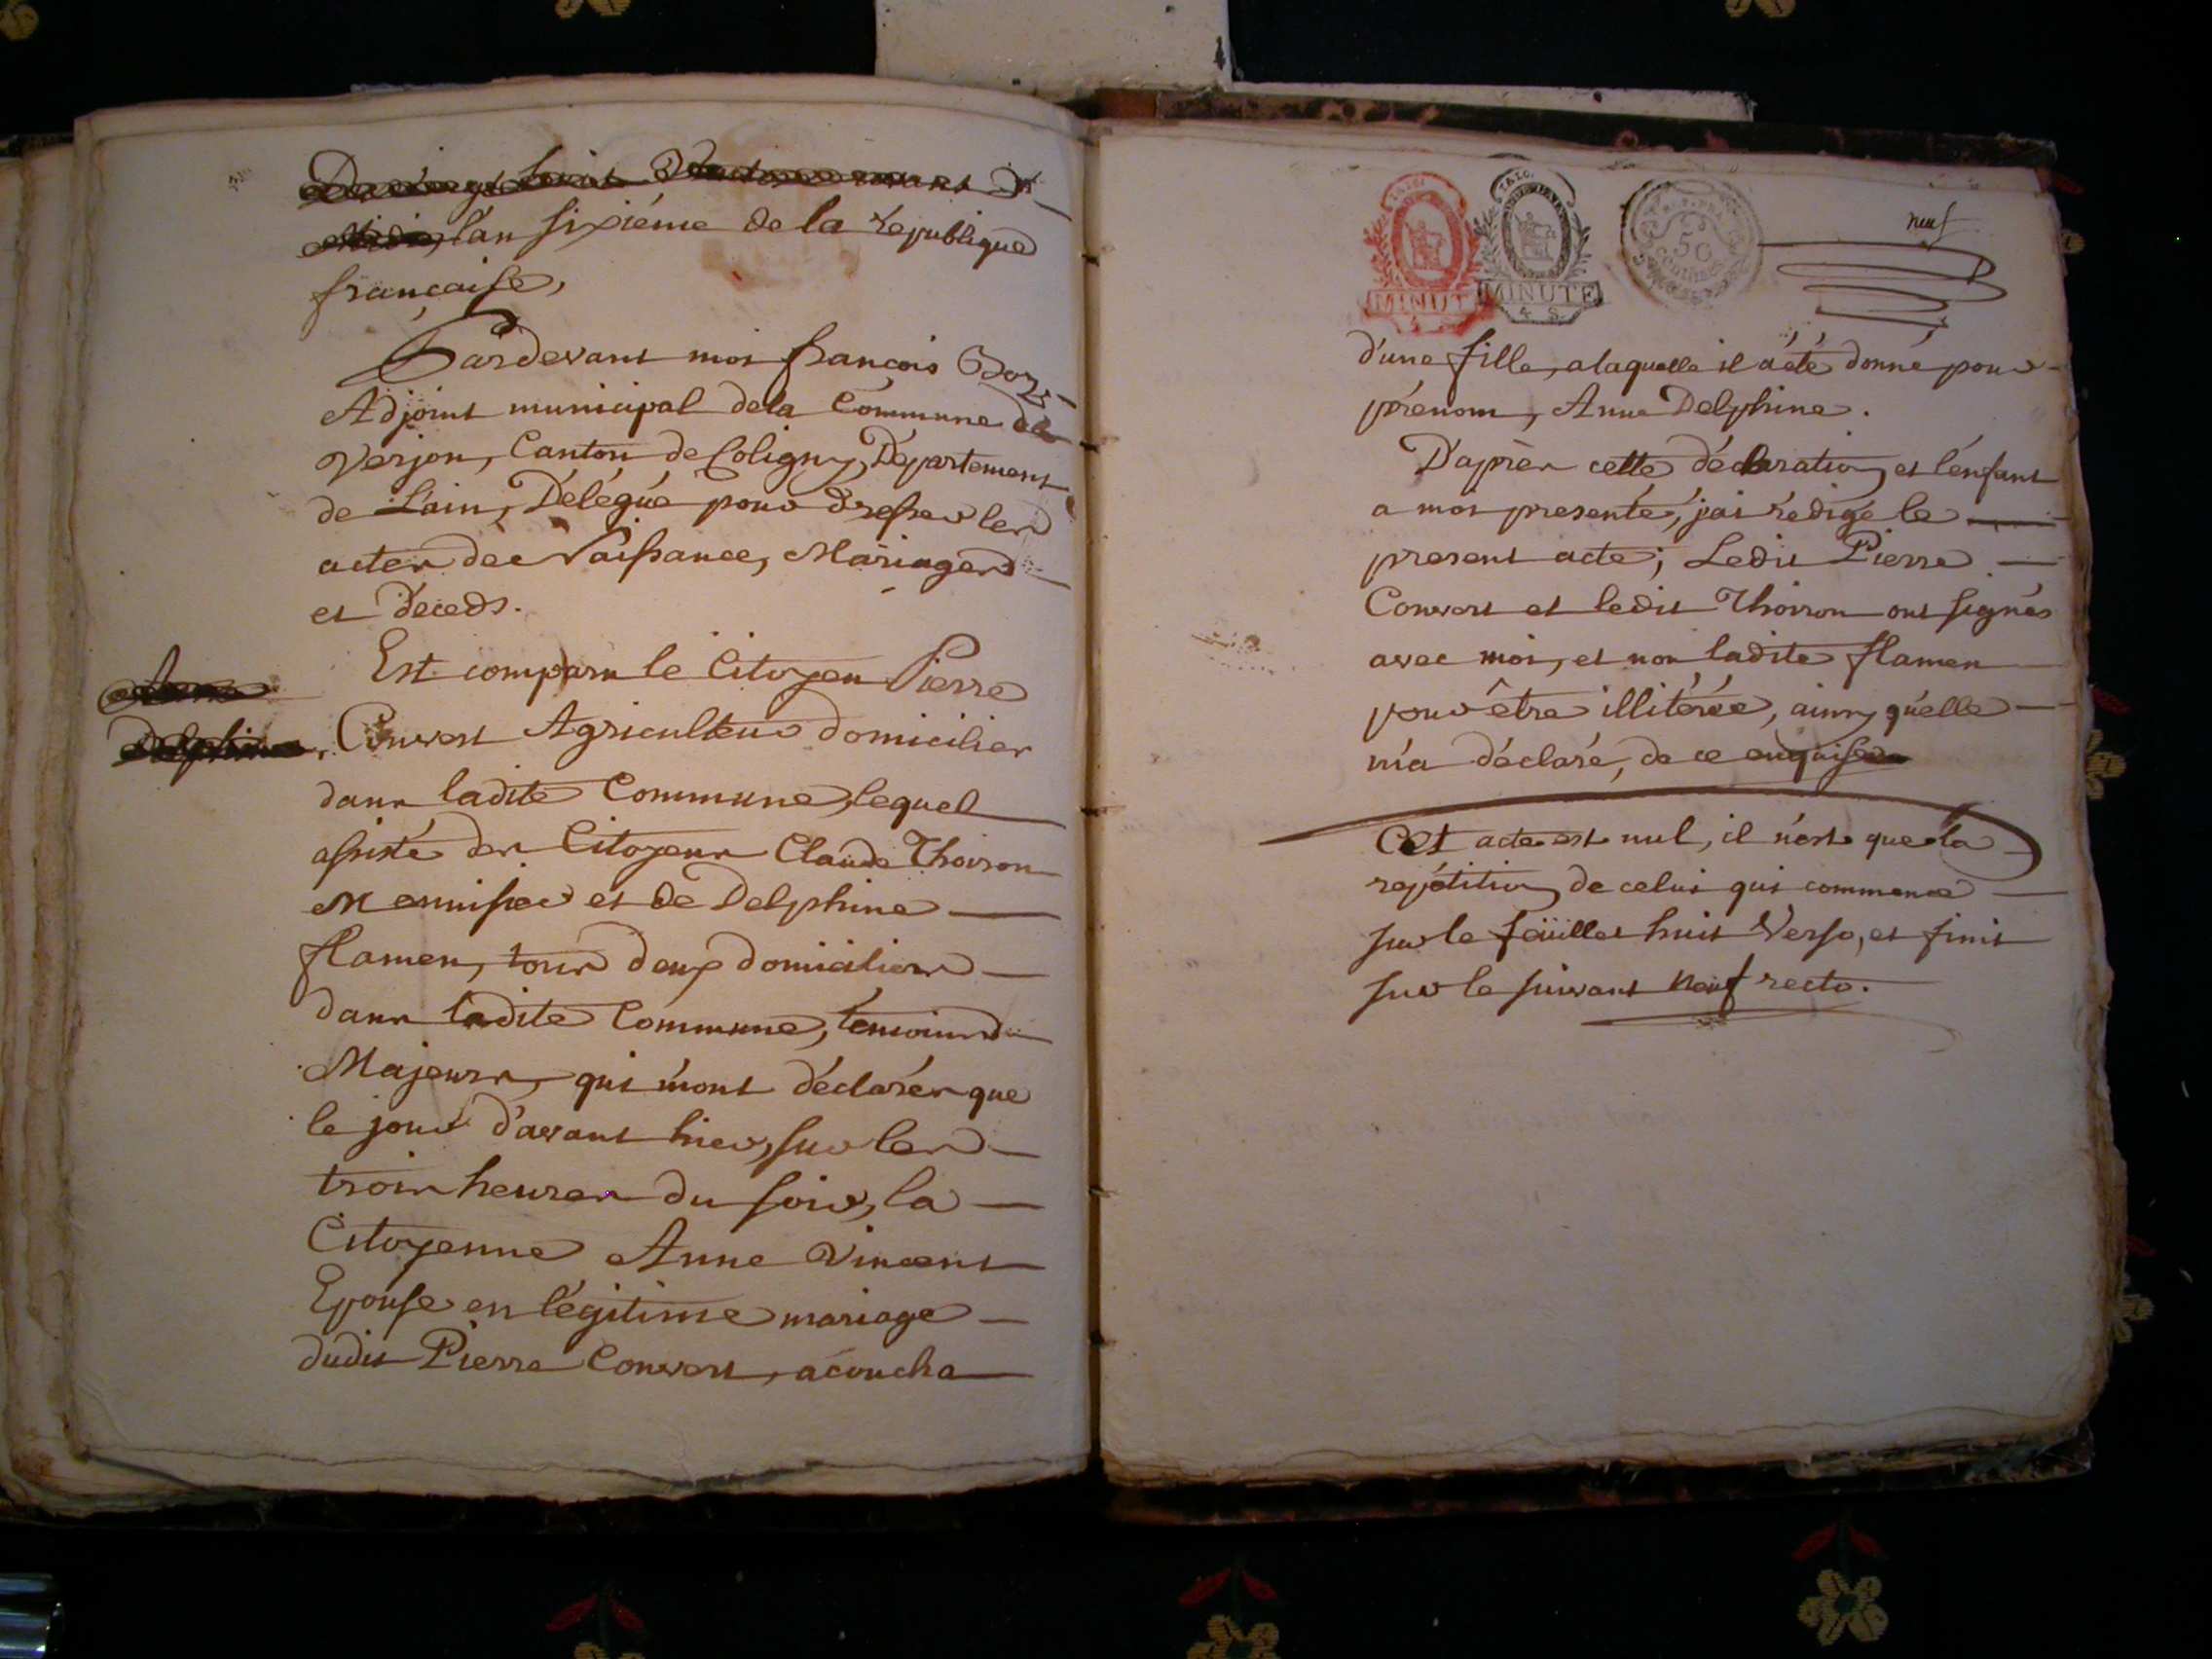 l'an sixiéme de la republique
françaisse,
Pardevant moi françois
Adjoint municipal dela Commune de
Verjon, Canton de Coligny, Département
de L'ain, Délégué pour dresser les
actes de Naissance, Mariages
et déceds.
Est comparu le Citoyen Pierre
Anne
Delphine
Convert Agriculteur domicilier
dans ladite Commune, lequel
assisté des Citoyens Claude Thoiron
Menuisier et de Delphine
flamen, tous deux domiciliers
dans ladite Commune, temoins
Majeurs, qui m'ont déclarés que
le jour d'avant hier, sur les
trois heures du soir, la
Citoyenne Anne Vincent
Epouse en légitime mariage
dudit Pierre Convert, acoucha
MINUTE
4 S.
MINUTE
4 S.
50
centimes
neuf
d'une fille, a laquelle il a été donné pour
prénom, Anne Delphine.
D'aprèr cette déclaration et l'enfant
a moi presenté, j'ai rédigé le
present acte; Ledit Pierre
Convert et ledit Thoiron ont signés
avec moi, et non ladite flamen
pour être illitérée, ainsy qu'elle
m'a déclaré, de ce enquise
Cet acte est nul, il n'est que la
repétition de celui qui commence
sur le feüillet huit Verso, et finit
sur le suivant neuf recto.